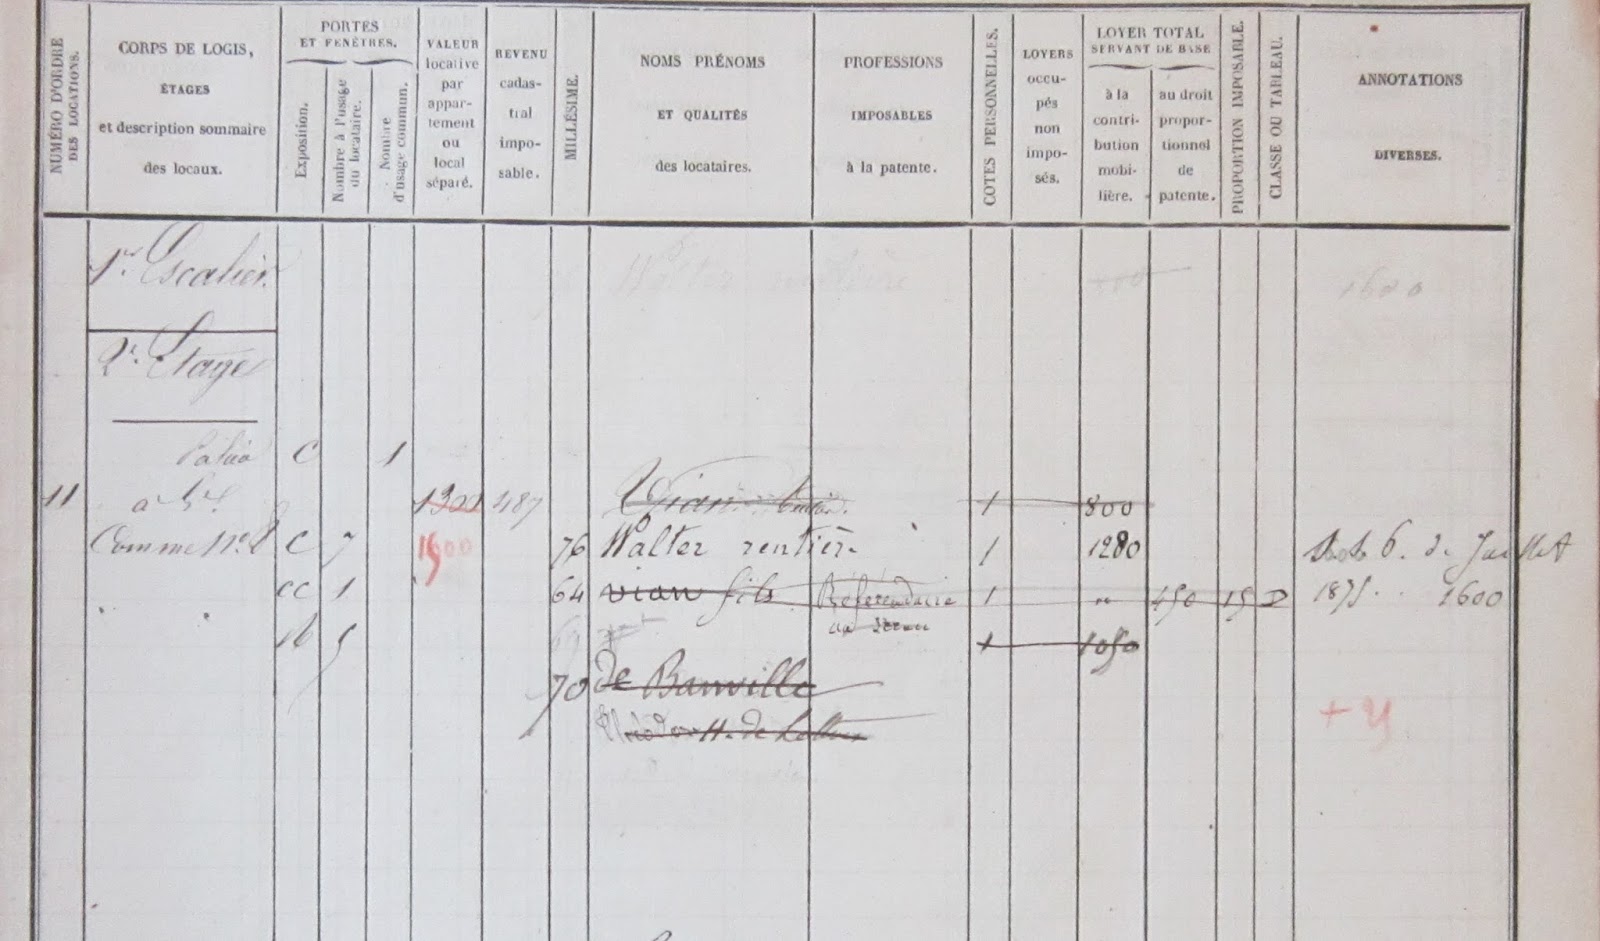 NUMÉRO D'ORDRE
DES LOCATIONS.
CORPS DE LOGIS,
ÉTAGES
et description sommaire
des locaux.
PORTES
ET FENÊTRES.
Exposition.
Nombre à l'usage
du locataire.
Nombre
d'usage commun.
VALEUR
locative
par
appar-
tement
ou
local
séparé.
REVENU
cadas-
tral
impo-
sable.
MILLÉSIME.
NOMS PRÉNOMS
ET QUALITÉS
des locataires.
PROFESSIONS
IMPOSABLES
à la patente.
COTES PERSONNELLES.
LOYERS
occu-
pés
non
impo-
sés.
LOYER TOTAL
SERVANT DE BASE
à la
contri-
bution
mobi-
lière.
au droit
propor-
tionnel
de
patente.
PROPORTION IMPOSABLE.
CLASSE OU TABLEAU.
ANNOTATIONS
DIVERSES.
1er Escalier
Walter rentière 1600
2e Etage
C 1
11 1300 487 Vian 1 800
Comme No 8 C 7 1500 76 Walter rentière 1 1280 6. de Juillet
CC 1 64 vian fils Référendaire 1 " 450 15 D 1875 1600
au Sceau
5 69 1 1050
70 de Banville
+ y
Théodore H. de Lettres